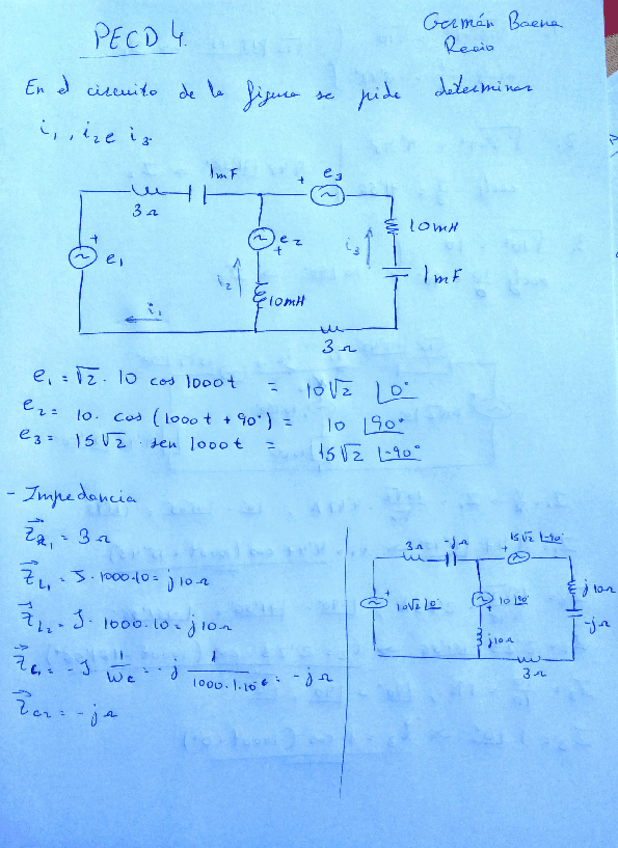 PECD 4.
Germán Baena
Recio
En el circuito de la figura se pide determinar
i₁, i₂ e i₃.
1mF
+ e₃
3 Ω
10mH
+ e₁
e₂ +
i₃
1mF
i₂
10mH
i₁
3 Ω
e₁ = √2 · 10 cos 1000t = 10√2 |0°
e₂ = 10 · cos (1000t + 90°) = 10 |90°
e₃ = 15√2 · sen 1000t = 15√2 |-90°
- Impedancia
Z_R₁ = 3 Ω
Z_L₁ = J · 1000 · 10 = j10Ω
Z_L₂ = J · 1000 · 10 = j10Ω
Z_C₁ = -J · 1/WC = -j 1/1000·1·10⁻⁶ = -jΩ
Z_C₂ = -jΩ
3Ω -jΩ 15√2 |-90°
+
+ 10√2 |0°
10 |90°
+
j10Ω
-jΩ
j10Ω
3Ω